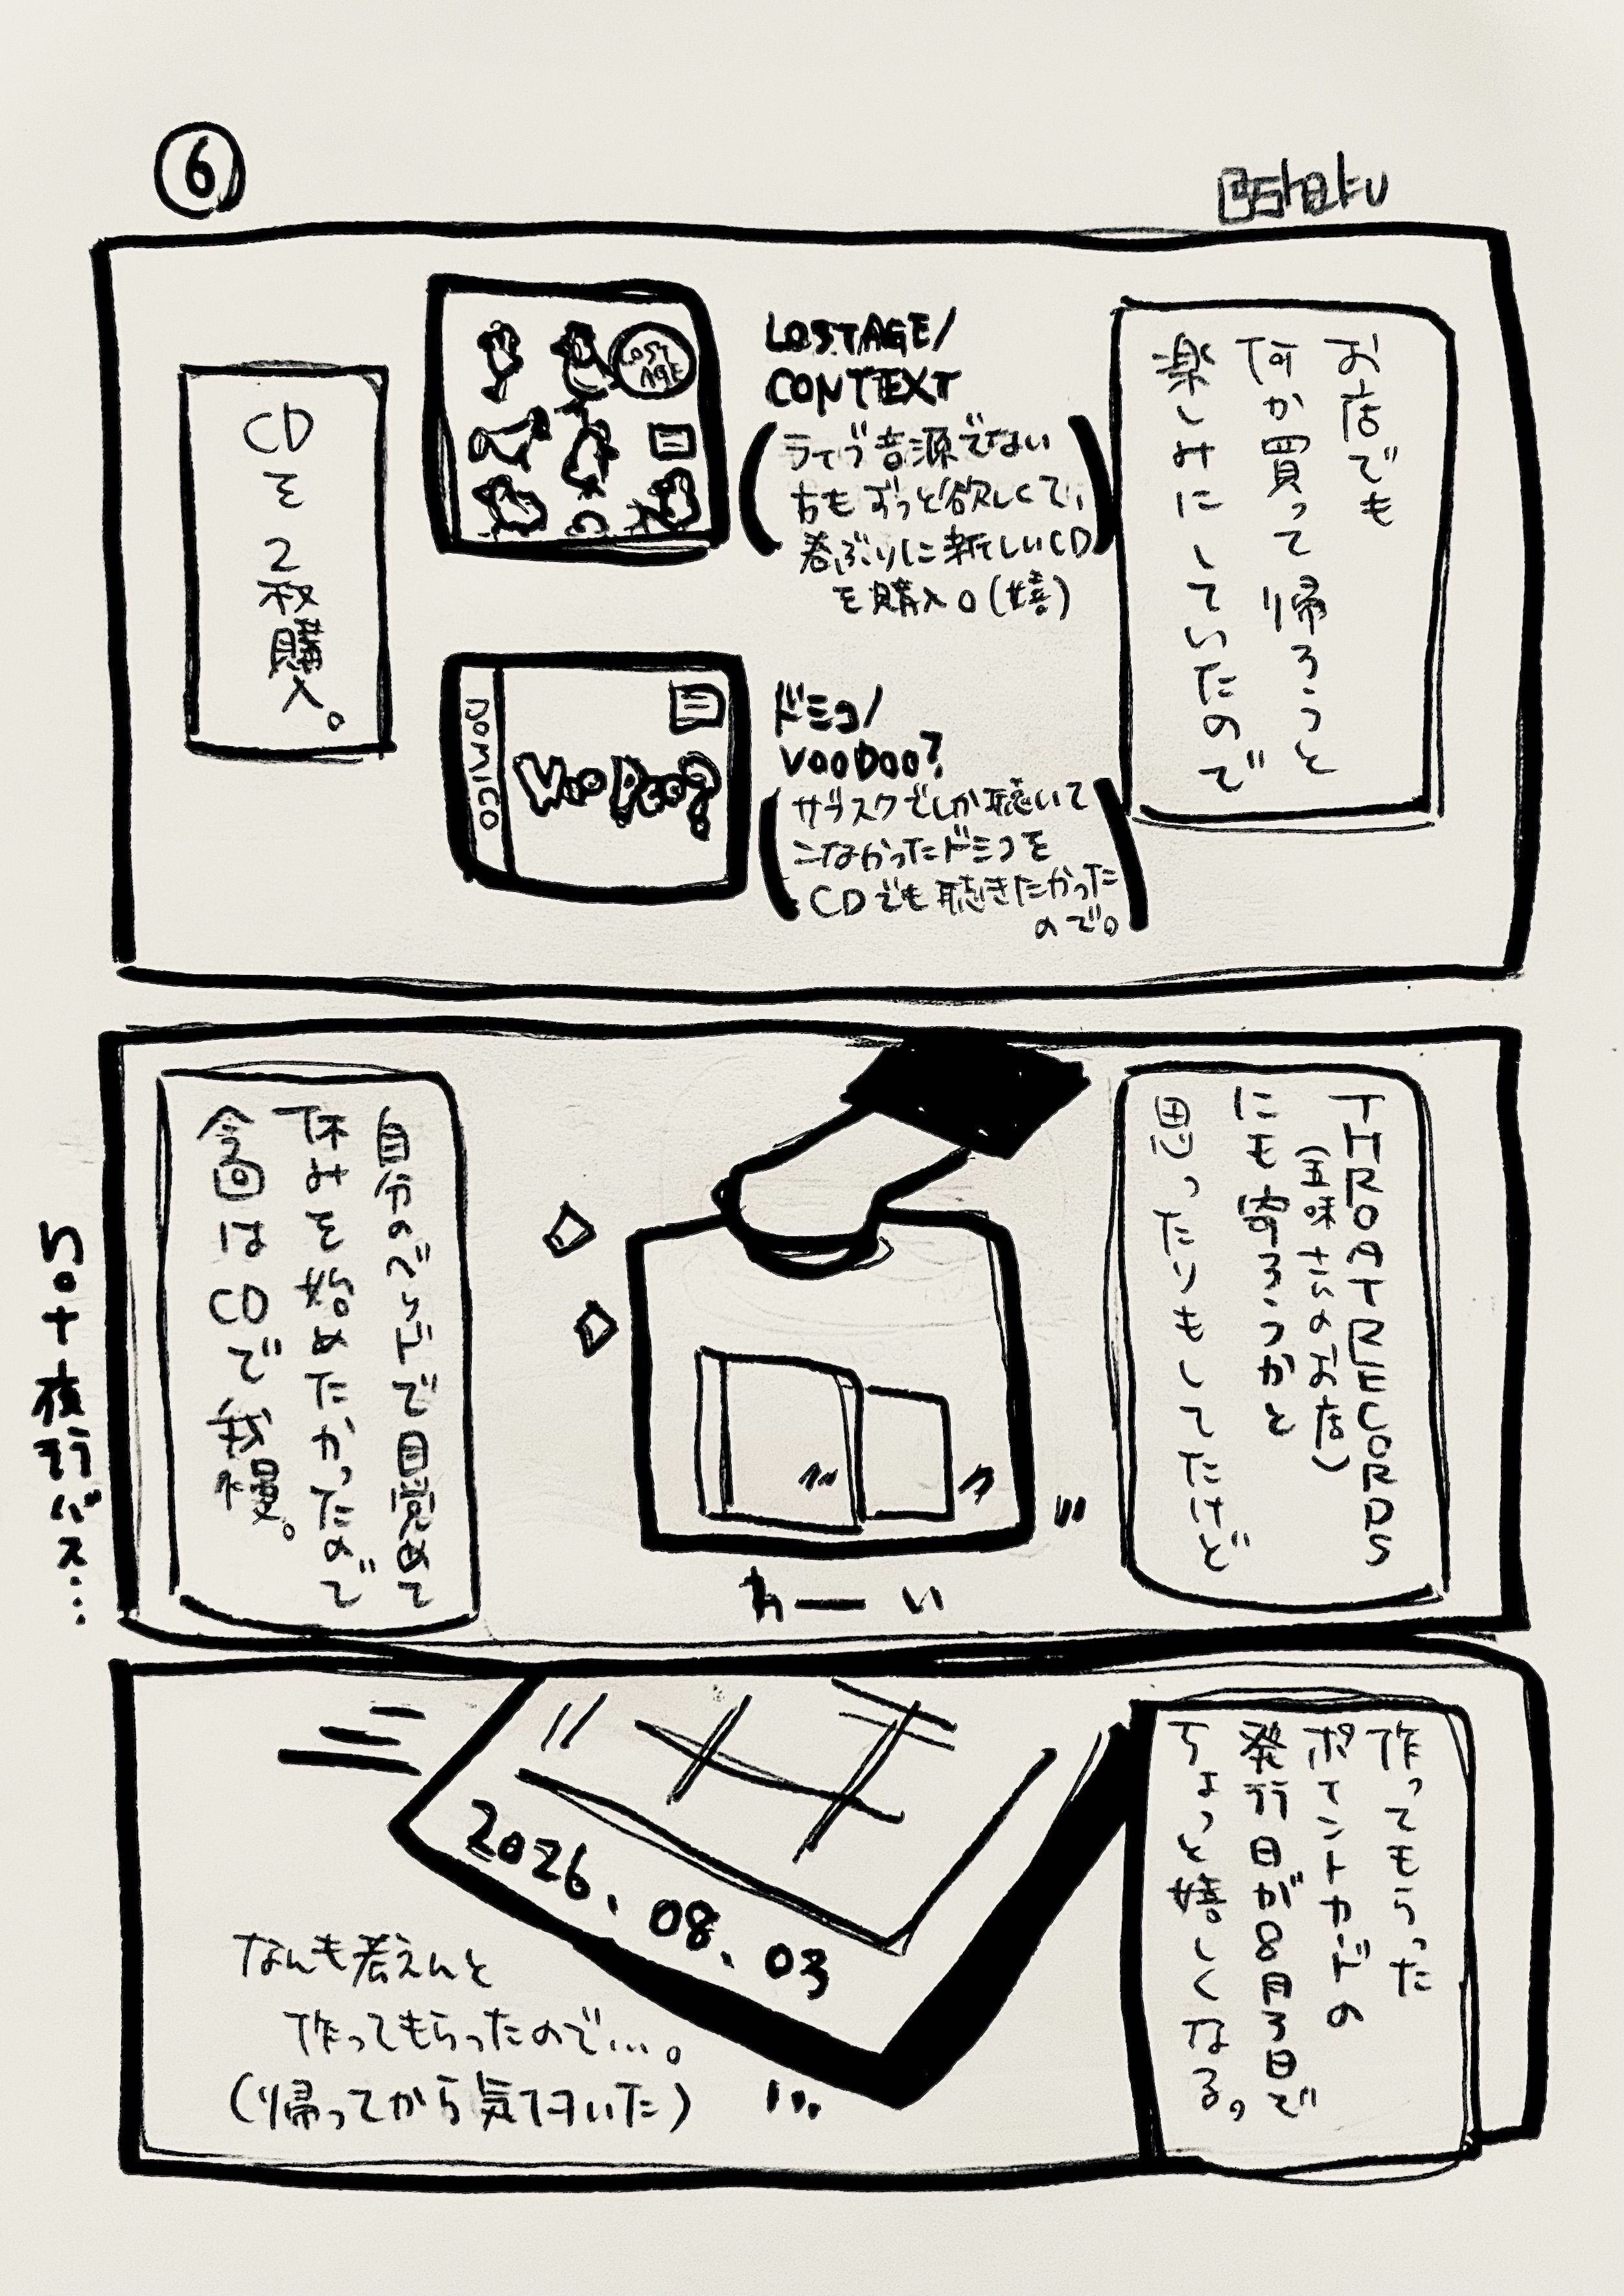 ⑥
お店でも
何か買って帰ろうと
楽しみにしていたので
LOSTAGE/
CONTEXT
ライブ音源でない
方もずっと欲しくて、
春ぶりに新しいCD
を購入。(嬉)
LOST
AGE
ドミコ/
VOODOO?
サブスクでしか聴いて
こなかったドミコを
CDでも聴きたかった
ので。
DOMICO
VOODOO?
CDを2枚購入。
THROAT RECORDS
(五味さんのお店)
にも寄ろうかと
思ったりもしてたけど
わーい
自分のベッドで目覚めて
休みを始めたかったので
今回はCDで我慢。
夜行バス…
作ってもらった
ポイントカードの
発行日が8月3日で
ちょっと嬉しくなる。
2026.08.03
なんも考えんと
作ってもらったので…。
(帰ってから気付いた)